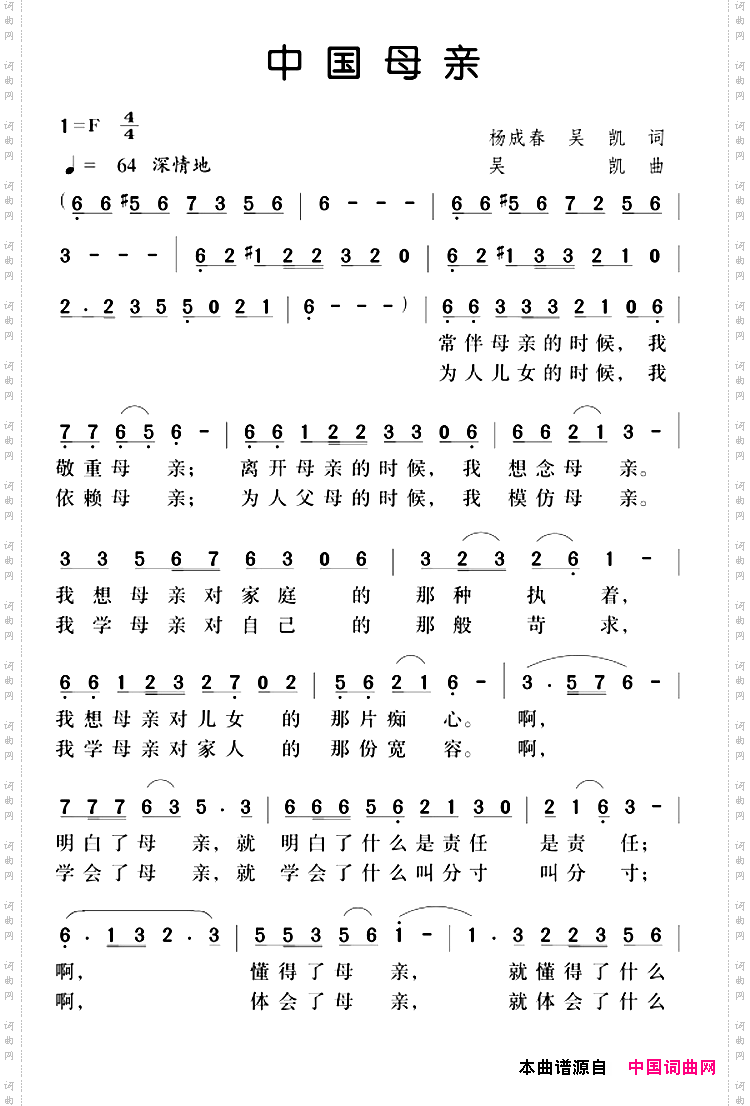 中国母亲
1=F 4/4
杨成春 吴 凯 词
♩= 64 深情地
吴 凯 曲
(6 6 #5 6 7 3 5 6 | 6 - - - | 6 6 #5 6 7 2 5 6 |
3 - - - | 6 2 #1 2 2 3 2 0 | 6 2 #1 3 3 2 1 0 |
2 . 2 3 5 5 0 2 1 | 6 - - - ) | 6 6 3 3 3 2 1 0 6 |
常伴母亲的时候，我
为人儿女的时候，我
7 7 6 5 6 - | 6 6 1 2 2 3 3 0 6 | 6 6 2 1 3 - |
敬重母亲；离开母亲的时候，我 想念母亲。
依赖母亲；为人父母的时候，我 模仿母亲。
3 3 5 6 7 6 3 0 6 | 3 2 3 2 6 1 - |
我想母亲对家庭 的 那种执着，
我学母亲对自己 的 那般苛求，
6 6 1 2 3 2 7 0 2 | 5 6 2 1 6 - | 3 . 5 7 6 - |
我想母亲对儿女 的 那片痴心。 啊，
我学母亲对家人 的 那份宽容。 啊，
7 7 7 6 3 5 . 3 | 6 6 6 5 6 2 1 3 0 | 2 1 6 3 - |
明白了母亲，就 明白了什么是责任 是责任；
学会了母亲，就 学会了什么叫分寸 叫分寸；
6 . 1 3 2 . 3 | 5 5 3 5 6 1 - | 1 . 3 2 2 3 5 6 |
啊， 懂得了母亲， 就懂得了什么
啊， 体会了母亲， 就体会了什么
本曲谱源自 中国词曲网
词曲网